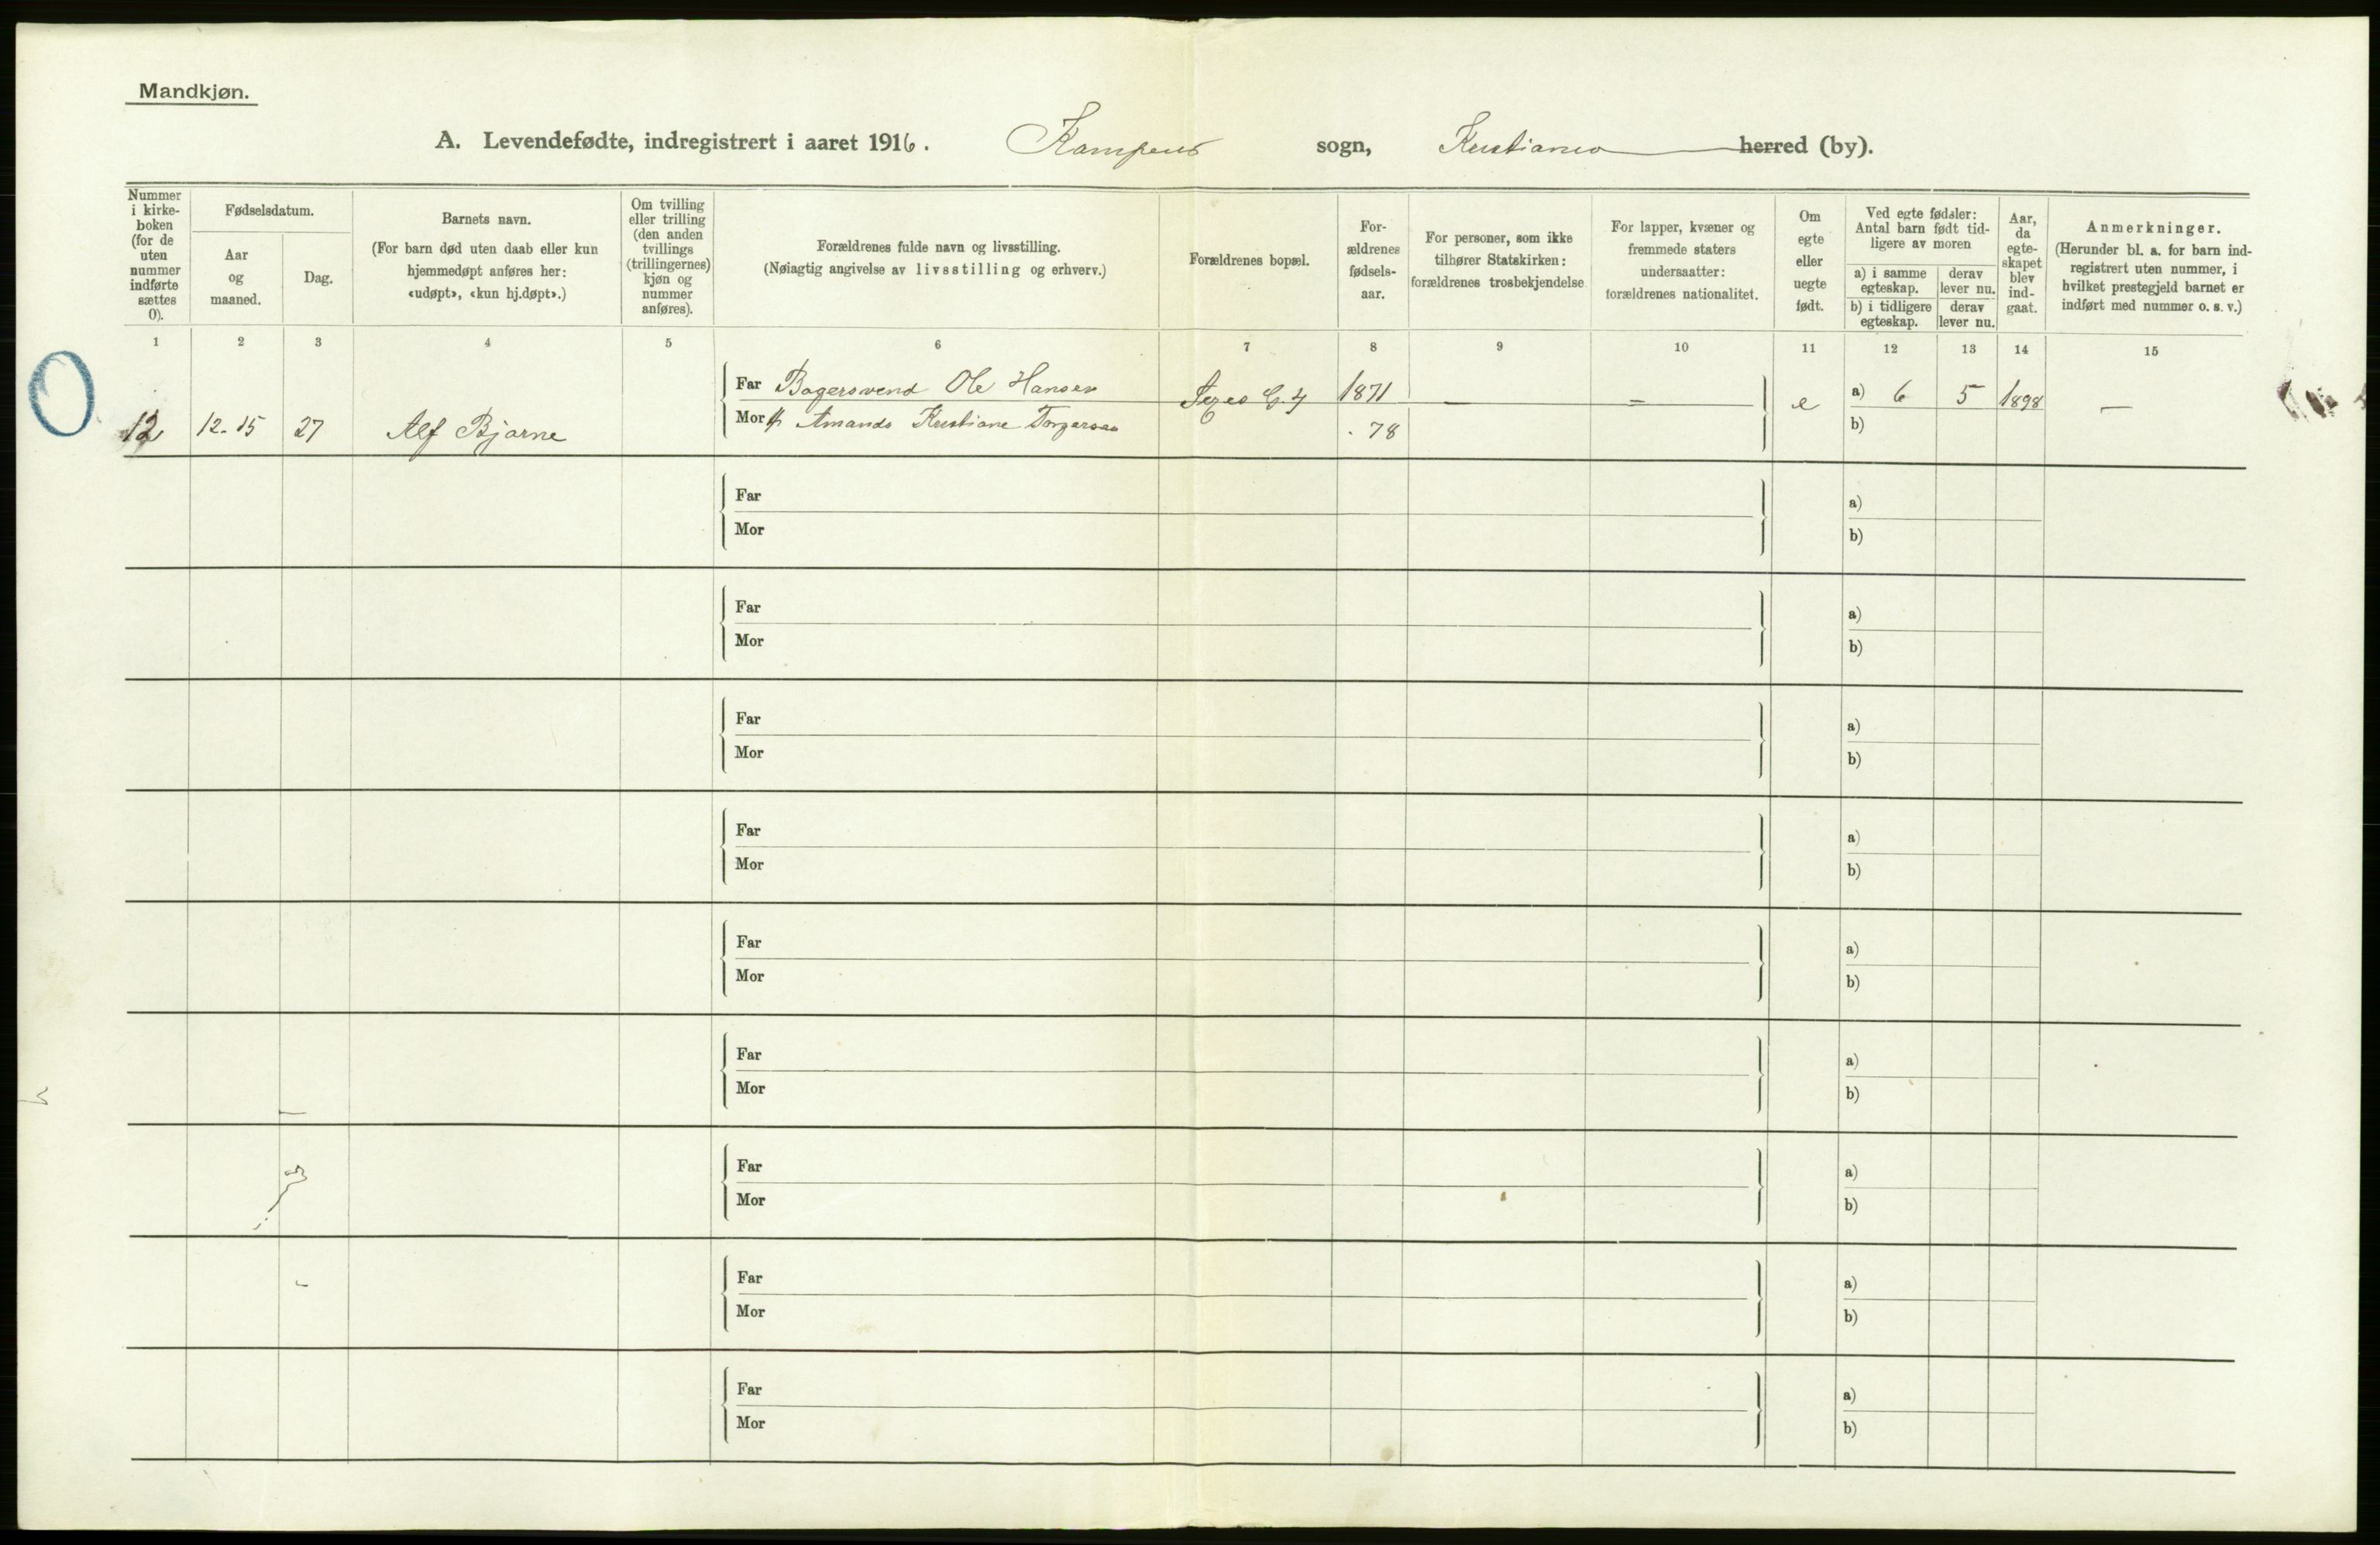 Mandkjøn.
A. Levendefødte, indregistrert i aaret 1916. Kampens sogn, Kristiania herred (by).
Nummer i kirke-boken (for de uten nummer indførte sættes 0).
Fødselsdatum.
Aar og maaned.
Dag.
Barnets navn.
(For barn død uten daab eller kun hjemmedøpt anføres her: «udøpt», «kun hj.døpt».)
Om tvilling eller trilling (den anden tvillings (trillingernes) kjøn og nummer anføres).
Forældrenes fulde navn og livsstilling.
(Nøiagtig angivelse av livsstilling og erhverv.)
Forældrenes bopæl.
For-ældrenes fødsels-aar.
For personer, som ikke tilhører Statskirken: forældrenes trosbekjendelse
For lapper, kvæner og fremmede staters undersaatter: forældrenes nationalitet.
Om egte eller uegte født.
Ved egte fødsler: Antal barn født tid-ligere av moren
a) i samme egteskap.
derav lever nu.
b) i tidligere egteskap.
derav lever nu.
Aar, da egte-skapet blev ind-gaat.
Anmerkninger.
(Herunder bl. a. for barn ind-registrert uten nummer, i hvilket prestegjeld barnet er indført med nummer o. s. v.)
1 2 3 4 5 6 7 8 9 10 11 12 13 14 15
Far Bagersvend Ole Hansen 1871 — — e a) 6 5 1898 —
12 12.15 27 Alf Bjarne Mor Amanda Kristiane Torgersen . 78 b)
Far a)
Mor b)
Far a)
Mor b)
Far a)
Mor b)
Far a)
Mor b)
Far a)
Mor b)
Far a)
Mor b)
Far a)
Mor b)
Far a)
Mor b)
Far a)
Mor b)